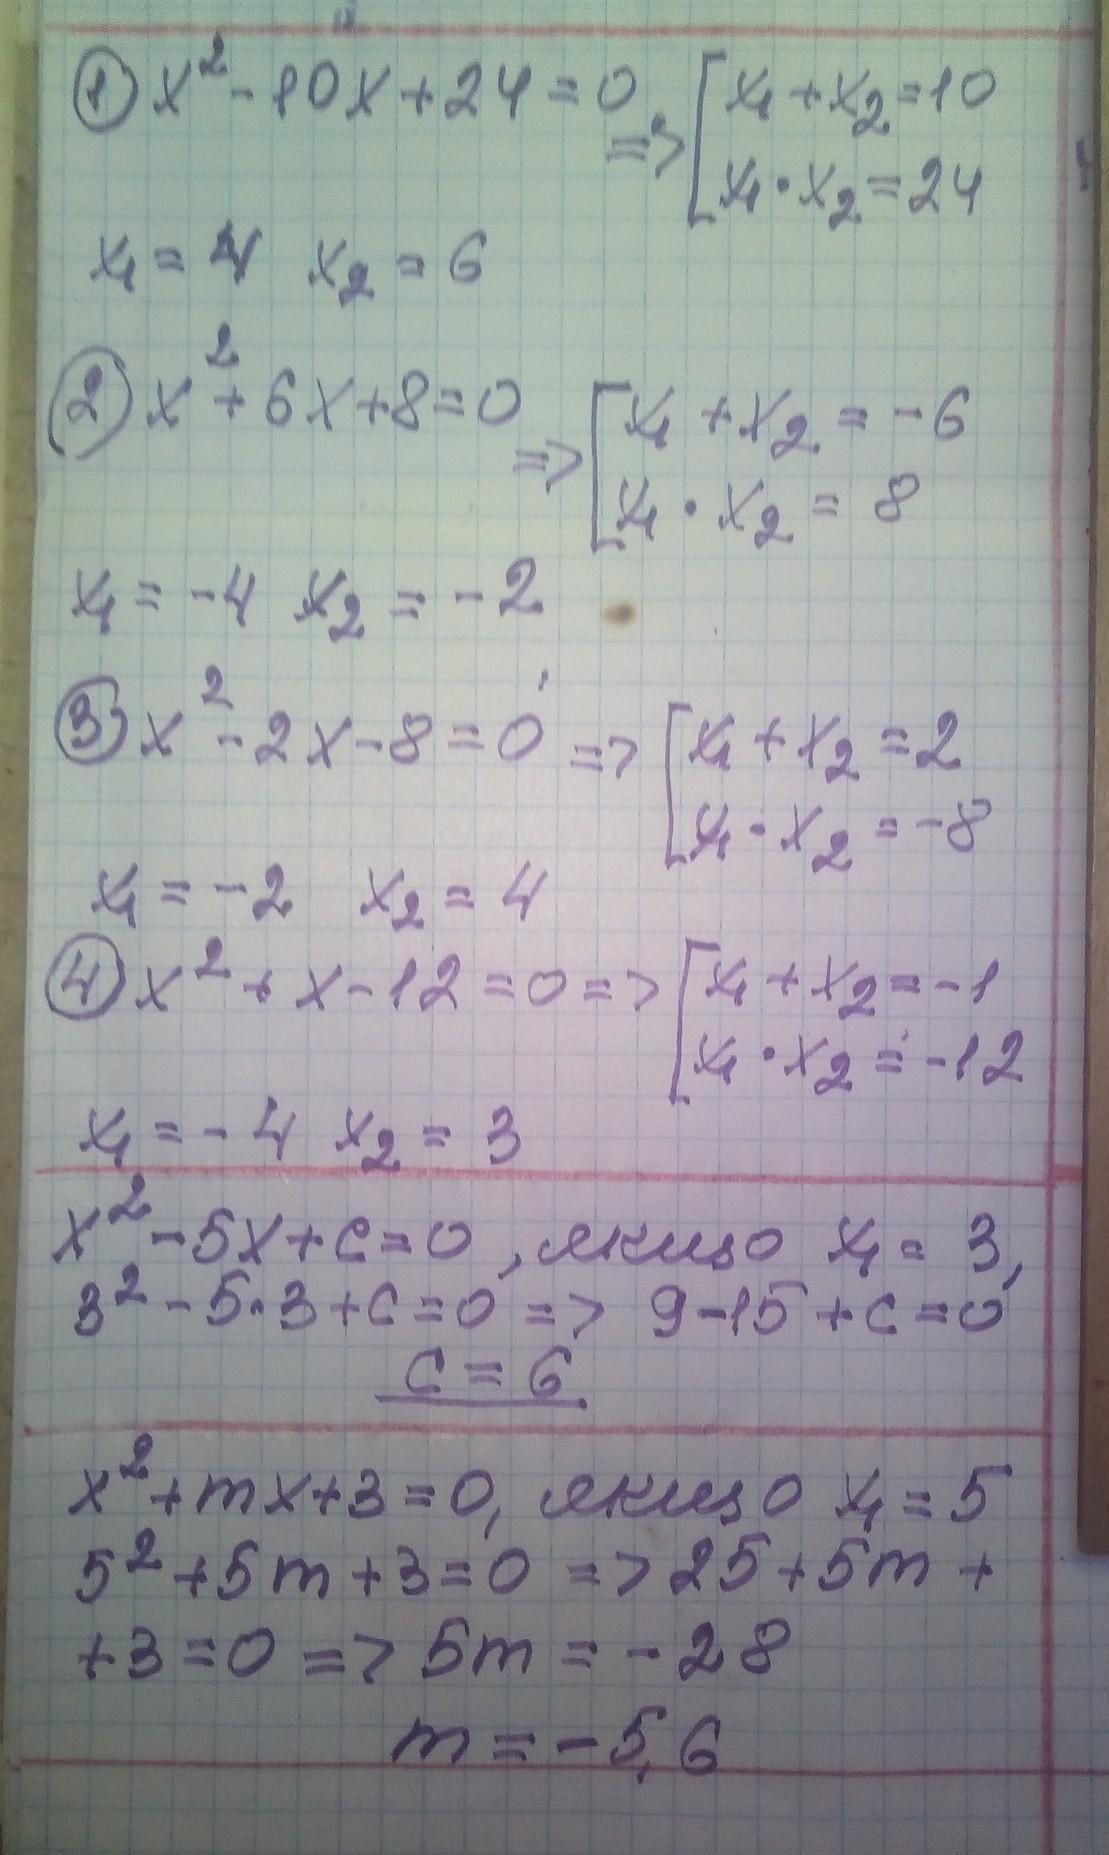 ① x² - 10x + 24 = 0 => [ x₁ + x₂ = 10
x₁ · x₂ = 24
x₁ = 4 x₂ = 6
② x² + 6x + 8 = 0 => [ x₁ + x₂ = -6
x₁ · x₂ = 8
x₁ = -4 x₂ = -2
③ x² - 2x - 8 = 0 => [ x₁ + x₂ = 2
x₁ · x₂ = -8
x₁ = -2 x₂ = 4
④ x² + x - 12 = 0 => [ x₁ + x₂ = -1
x₁ · x₂ = -12
x₁ = -4 x₂ = 3
x² - 5x + c = 0, якщо x₁ = 3,
3² - 5·3 + c = 0 => 9 - 15 + c = 0
c = 6
x² + mx + 3 = 0, якщо x₁ = 5
5² + 5m + 3 = 0 => 25 + 5m +
+ 3 = 0 => 5m = -28
m = -5,6